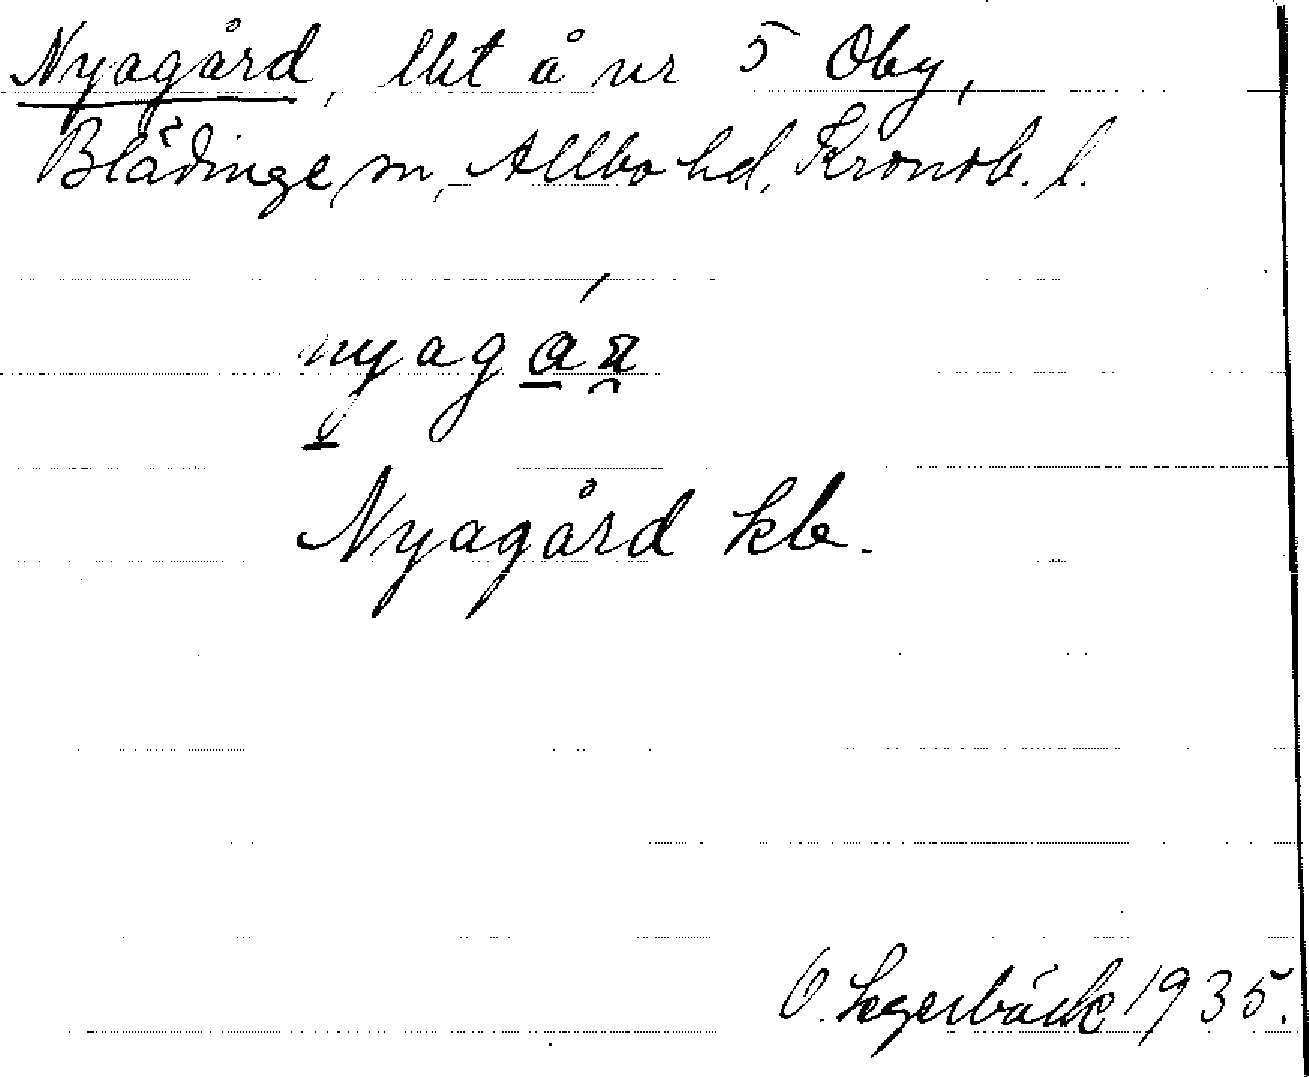 Nyagård, lht å nr 5 Oby,
Blädinge sn, Allbo hd, Kronob. l.
nyagáʀ
Nyagård kb.
O. Segerbäck 1935.